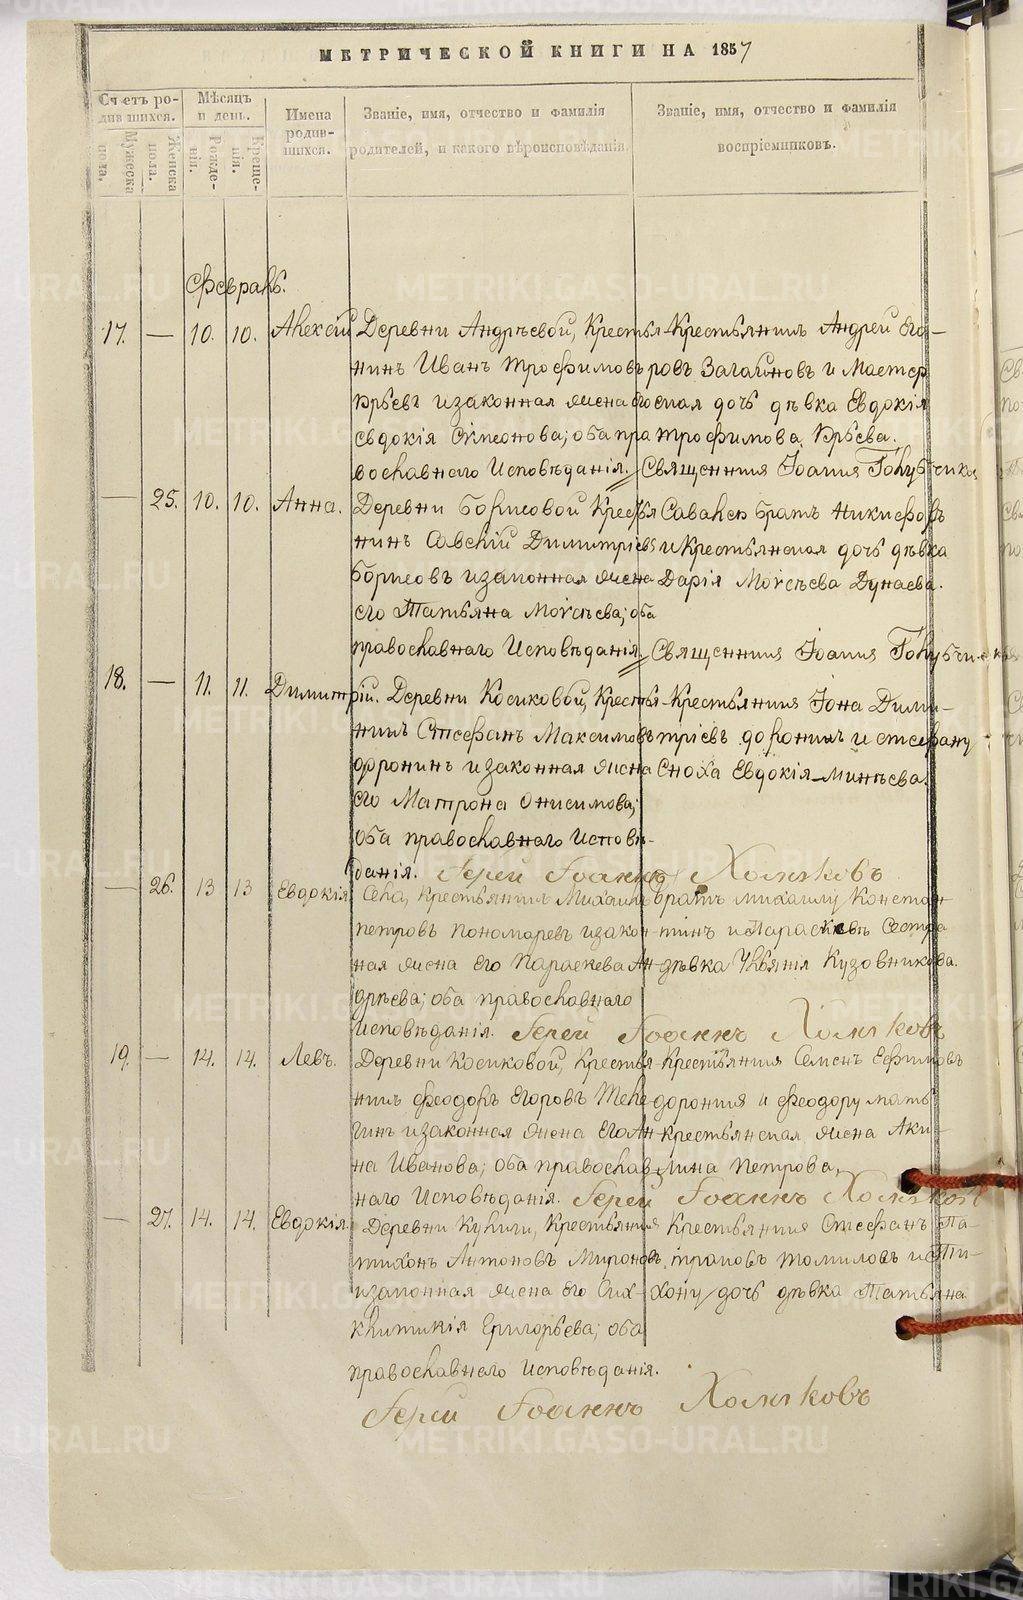 МЕТРИЧЕСКОЙ КНИГИ НА 1857
Счетъ родившихся.
Мѣсяцъ и день.
Имена родившихся.
Званіе, имя, отчество и фамилія родителей, и какого вѣроисповѣданія.
Званіе, имя, отчество и фамилія воспріемниковъ.
Мужеска пола.
Женска пола.
Рожденія.
Крещенія.
Февраль.
17. — 10. 10. Алексій Деревни Андрѣевой, Крестья-
нинъ Иванъ Трофимовъ
Юрьевъ и законная жена его
Евдокія Симеонова; оба пра
вославнаго Исповѣданія.
Крестьянинъ Андрей
ровъ Загайновъ и
дочь дѣвка Евдокія
Трофимова Юрьева.
Священникъ Іоаннъ
— 25. 10. 10. Анна. Деревни Борисовой Крестья
нинъ Димитріевъ
Борисовъ и законная жена
его Татьяна Моѵсѣева; оба
православнаго Исповѣданія
братъ Никифоръ
и крестьянская дочь дѣвка
Дарія Моѵсѣева Дунаева.
Священникъ Іоаннъ
18. — 11. 11. Димитрій. Деревни Косиковой, Крестья-
нинъ Стефанъ Максимовъ
и законная жена
его Матрона Онисимова;
оба православнаго Исповѣ-
данія.
Крестьянинъ Іона Дими-
тріевъ Доронинъ и Стефану
Сноха Евдокія Минѣева.
Іерей Іоаннъ Холмковъ
— 26. 13 13 Евдокія Села, Крестьянинъ Михаилъ
Петровъ Пономаревъ и закон-
ная жена его Параскева Ан-
дрѣева; оба православнаго
Исповѣданія.
братъ Михаилу Констан-
тинъ и Параскевѣ Сестра
дѣвка Ульянія Кузовникова.
Іерей Іоаннъ Холмковъ
19. — 14. 14. Левъ. Деревни Косиковой, Крестья-
нинъ Феодоръ Егоровъ Теле
гинъ и законная жена его Ан-
на Иванова; оба православ
наго Исповѣданія.
Крестьянинъ Семенъ Ефимовъ
Доронинъ и Феодору мать
крестьянская жена Аки-
лина Петрова.
Іерей Іоаннъ Холмковъ
— 27. 14. 14. Евдокія. Деревни Крестьянинъ
Тихонъ Антоновъ Мироновъ,
и законная жена его Син-
клитикія Григорьева; оба
православнаго Исповѣданія.
Крестьянинъ Стефанъ Па-
траповъ Томиловъ и Ти-
хону дочь дѣвка Татьяна
Іерей Іоаннъ Холмковъ
METRIKI.GASO-URAL.RU